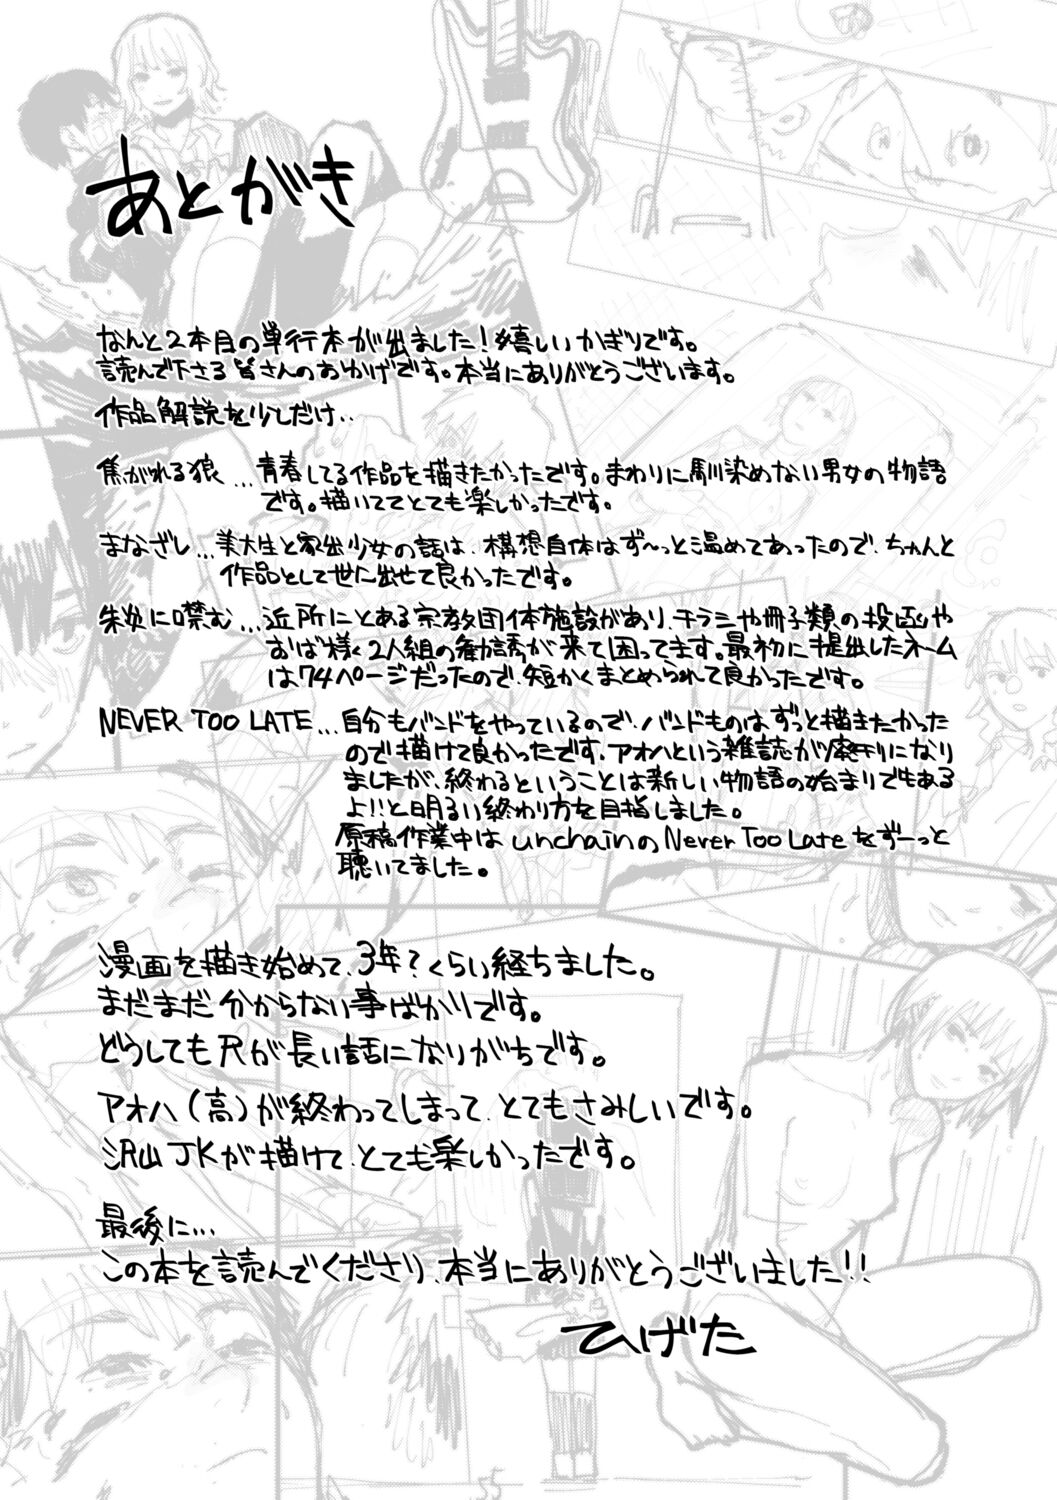 あとがき
なんと2本目の単行本が出ました！嬉しいかぎりです。
読んで下さる皆さんのおかげです。本当にありがとうございます。
作品解説を少しだけ..
焦がれる狼…青春してる作品を描きたかったです。まわりに馴染めない男女の物語
です。描いててとても楽しかったです。
まなざし…美大生と家出少女の話は、構想自体はず〜っと温めてあったので、ちゃんと
作品として世に出せて良かったです。
朱炎に噤む…近所にとある宗教団体施設があり、チラシや冊子類の投函や
おば様2人組の勧誘が来て困ってます。最初に提出したネーム
は74ページだったので、短かくまとめられて良かったです。
NEVER TOO LATE…自分もバンドをやっているので、バンドものはずっと描きたかった
ので描けて良かったです。アオハという雑誌が廃刊になり
ましたが、終わるということは新しい物語の始まりでもある
よ!!と明るい終わり方を目指しました。
原稿作業中はunchainのNever Too Lateをずーっと
聴いてました。
漫画を描き始めて、3年？くらい経ちました。
まだまだ分からない事ばかりです。
どうしても尺が長い話になりがちです。
アオハ（高）が終わってしまって、とてもさみしいです。
沢山JKが描けて、とても楽しかったです。
最後に…
この本を読んでくださり、本当にありがとうございました!!
ひげた